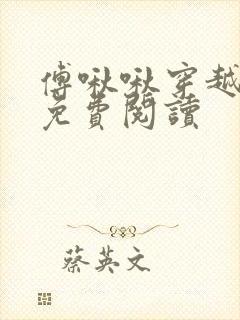 傅啾啾穿越
免費閱讀
蔡英文